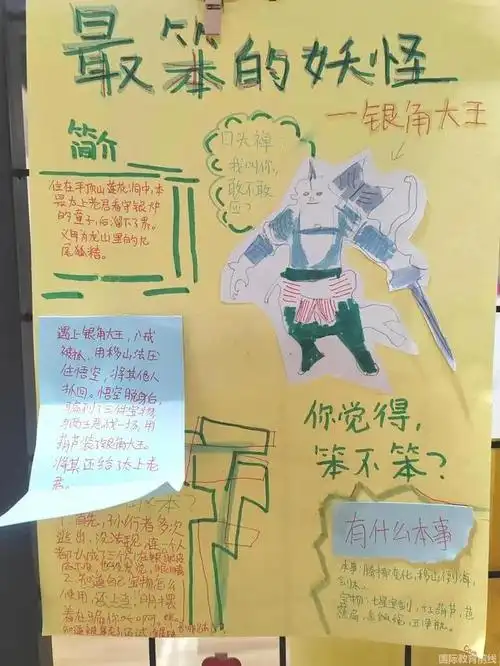 最笨的妖怪
一银角大王
简介
住在平顶山莲花洞中,本
是太上老君看守银炉
的童子,后溜下界。
义母为龙山里的九
尾狐精。
口头禅:
我叫你,
敢不敢
应?
遇上银角大王,八戒
被抓,用移山法压
住悟空,将其他人
抓回。悟空脱身后,
骗到了三件宝物
战一场,用
葫芦装银角大王
将其还给太上老
君。
你觉得,
笨不笨?
首先,孙行者多次
逃出,没法现,连一个人
都
2.知道自己宝物怎么
使用,还上当,明摆
着在骗你呵呵
有什么本事
本事:腾挪变化,移山倒海,
宝物:七星宝剑,红葫芦,芭
蕉扇,
国际教育前线